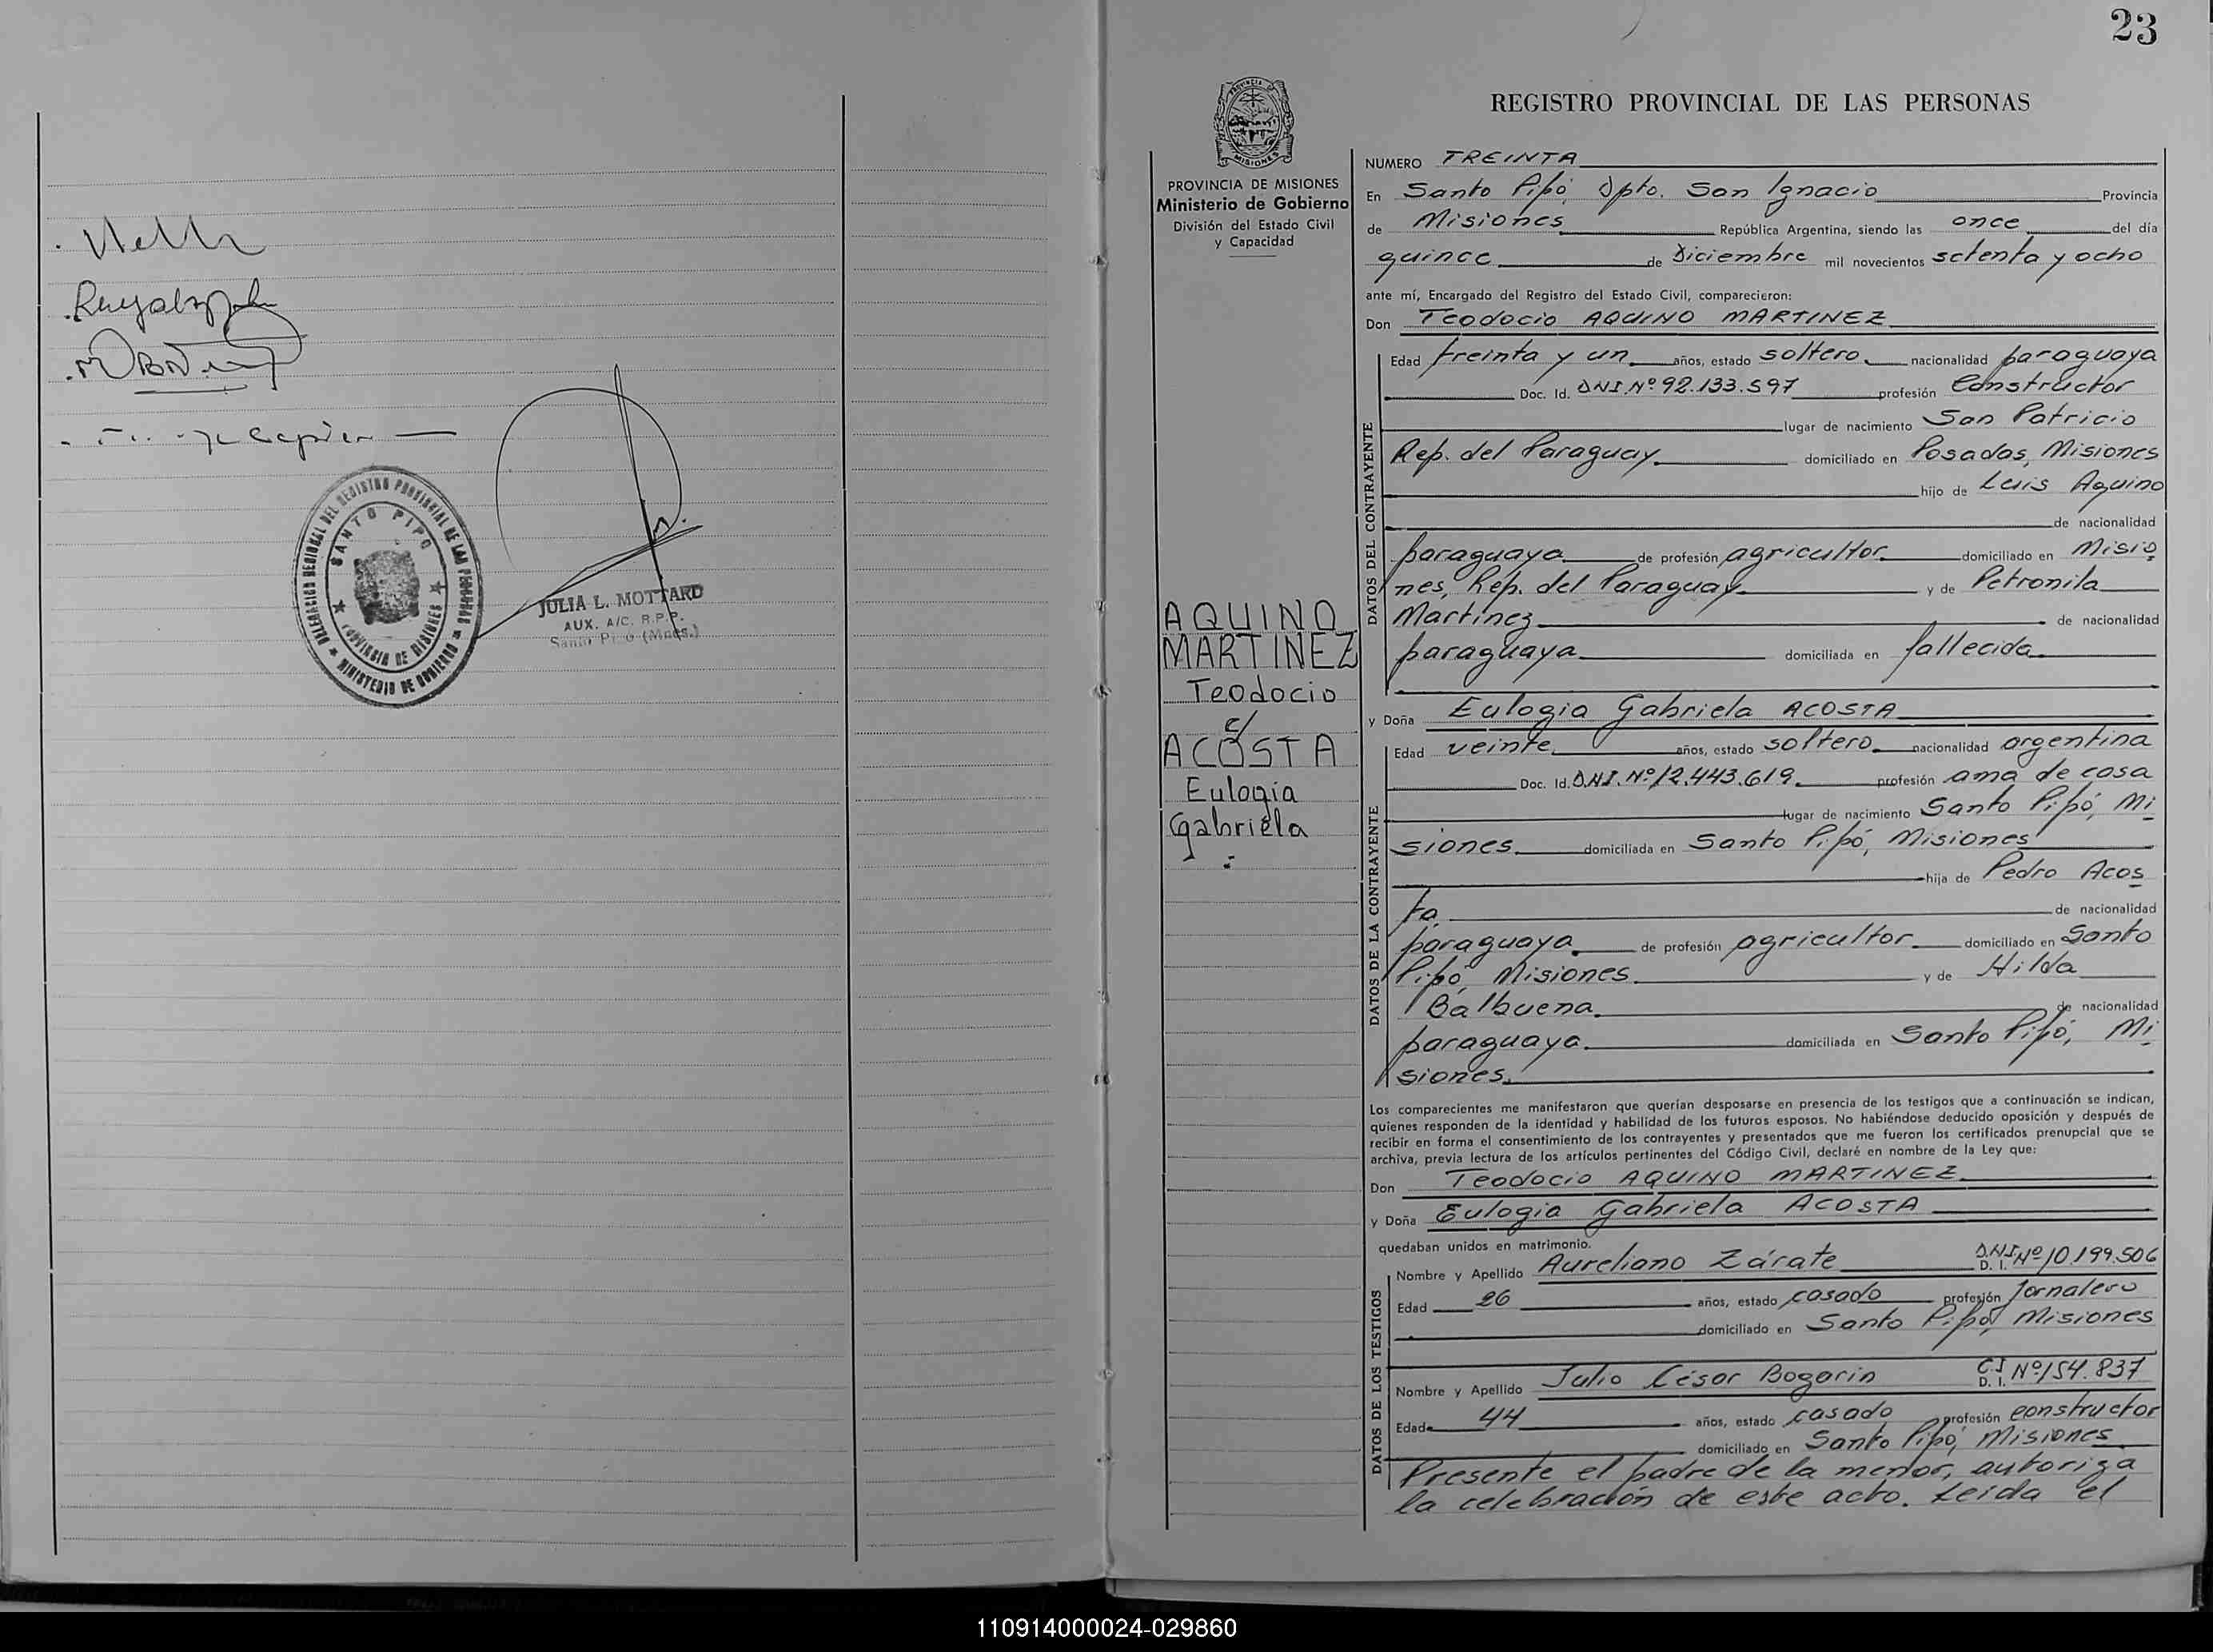 DELEGACION REGIONAL DEL REGISTRO PROVINCIAL DE LAS PERSONAS
MINISTERIO DE GOBIERNO
SANTO PIPO
PROVINCIA DE MISIONES
JULIA L. MOTTARD
AUX. A/C. R.P.P.
Santo Pipó (Mnes.)
23
PROVINCIA DE MISIONES
Ministerio de Gobierno
División del Estado Civil
y Capacidad
AQUINO
MARTINEZ
Teodocio
c/
ACOSTA
Eulogia
Gabriela
REGISTRO PROVINCIAL DE LAS PERSONAS
NUMERO TREINTA
En Santo Pipó, Dpto. San Ignacio Provincia
de Misiones República Argentina, siendo las once del día
quince de Diciembre mil novecientos setenta y ocho
ante mí, Encargado del Registro del Estado Civil, comparecieron:
Don Teodocio AQUINO MARTINEZ
DATOS DEL CONTRAYENTE
Edad treinta y un años, estado soltero. nacionalidad paraguaya
Doc. Id. DNI. Nº 92.133.597 profesión Constructor
lugar de nacimiento San Patricio
Rep. del Paraguay. domiciliado en Posadas, Misiones
hijo de Luis Aquino
de nacionalidad
paraguaya de profesión agricultor. domiciliado en Misio
nes, Rep. del Paraguay. y de Petronila
Martínez de nacionalidad
paraguaya. domiciliada en fallecida.
y Doña Eulogia Gabriela ACOSTA
DATOS DE LA CONTRAYENTE
Edad veinte. años, estado soltero. nacionalidad argentina
Doc. Id. D.N.I. Nº 12.443.619. profesión ama de casa
lugar de nacimiento Santo Pipó, Mi
siones. domiciliada en Santo Pipó, Misiones
hija de Pedro Acos
ta de nacionalidad
paraguaya. de profesión agricultor. domiciliado en Santo
Pipó, Misiones. y de Hilda
Balbuena. de nacionalidad
paraguaya. domiciliada en Santo Pipó, Mi
siones.
Los comparecientes me manifestaron que querían desposarse en presencia de los testigos que a continuación se indican,
quienes responden de la identidad y habilidad de los futuros esposos. No habiéndose deducido oposición y después de
recibir en forma el consentimiento de los contrayentes y presentados que me fueron los certificados prenupcial que se
archiva, previa lectura de los artículos pertinentes del Código Civil, declaré en nombre de la Ley que:
Don Teodocio AQUINO MARTINEZ.
y Doña Eulogia Gabriela ACOSTA
quedaban unidos en matrimonio.
DATOS DE LOS TESTIGOS
Nombre y Apellido Aureliano Zárate D. I. D.N.I. Nº 10.199.506
Edad 26 años, estado casado profesión Jornalero
domiciliado en Santo Pipó, Misiones
Nombre y Apellido Julio César Bogarin D. I. C.I Nº 154.837
Edad 44 años, estado casado profesión constructor
domiciliado en Santo Pipó, Misiones
Presente el padre de la menor, autoriza
la celebración de este acto. Leída el
110914000024-029860